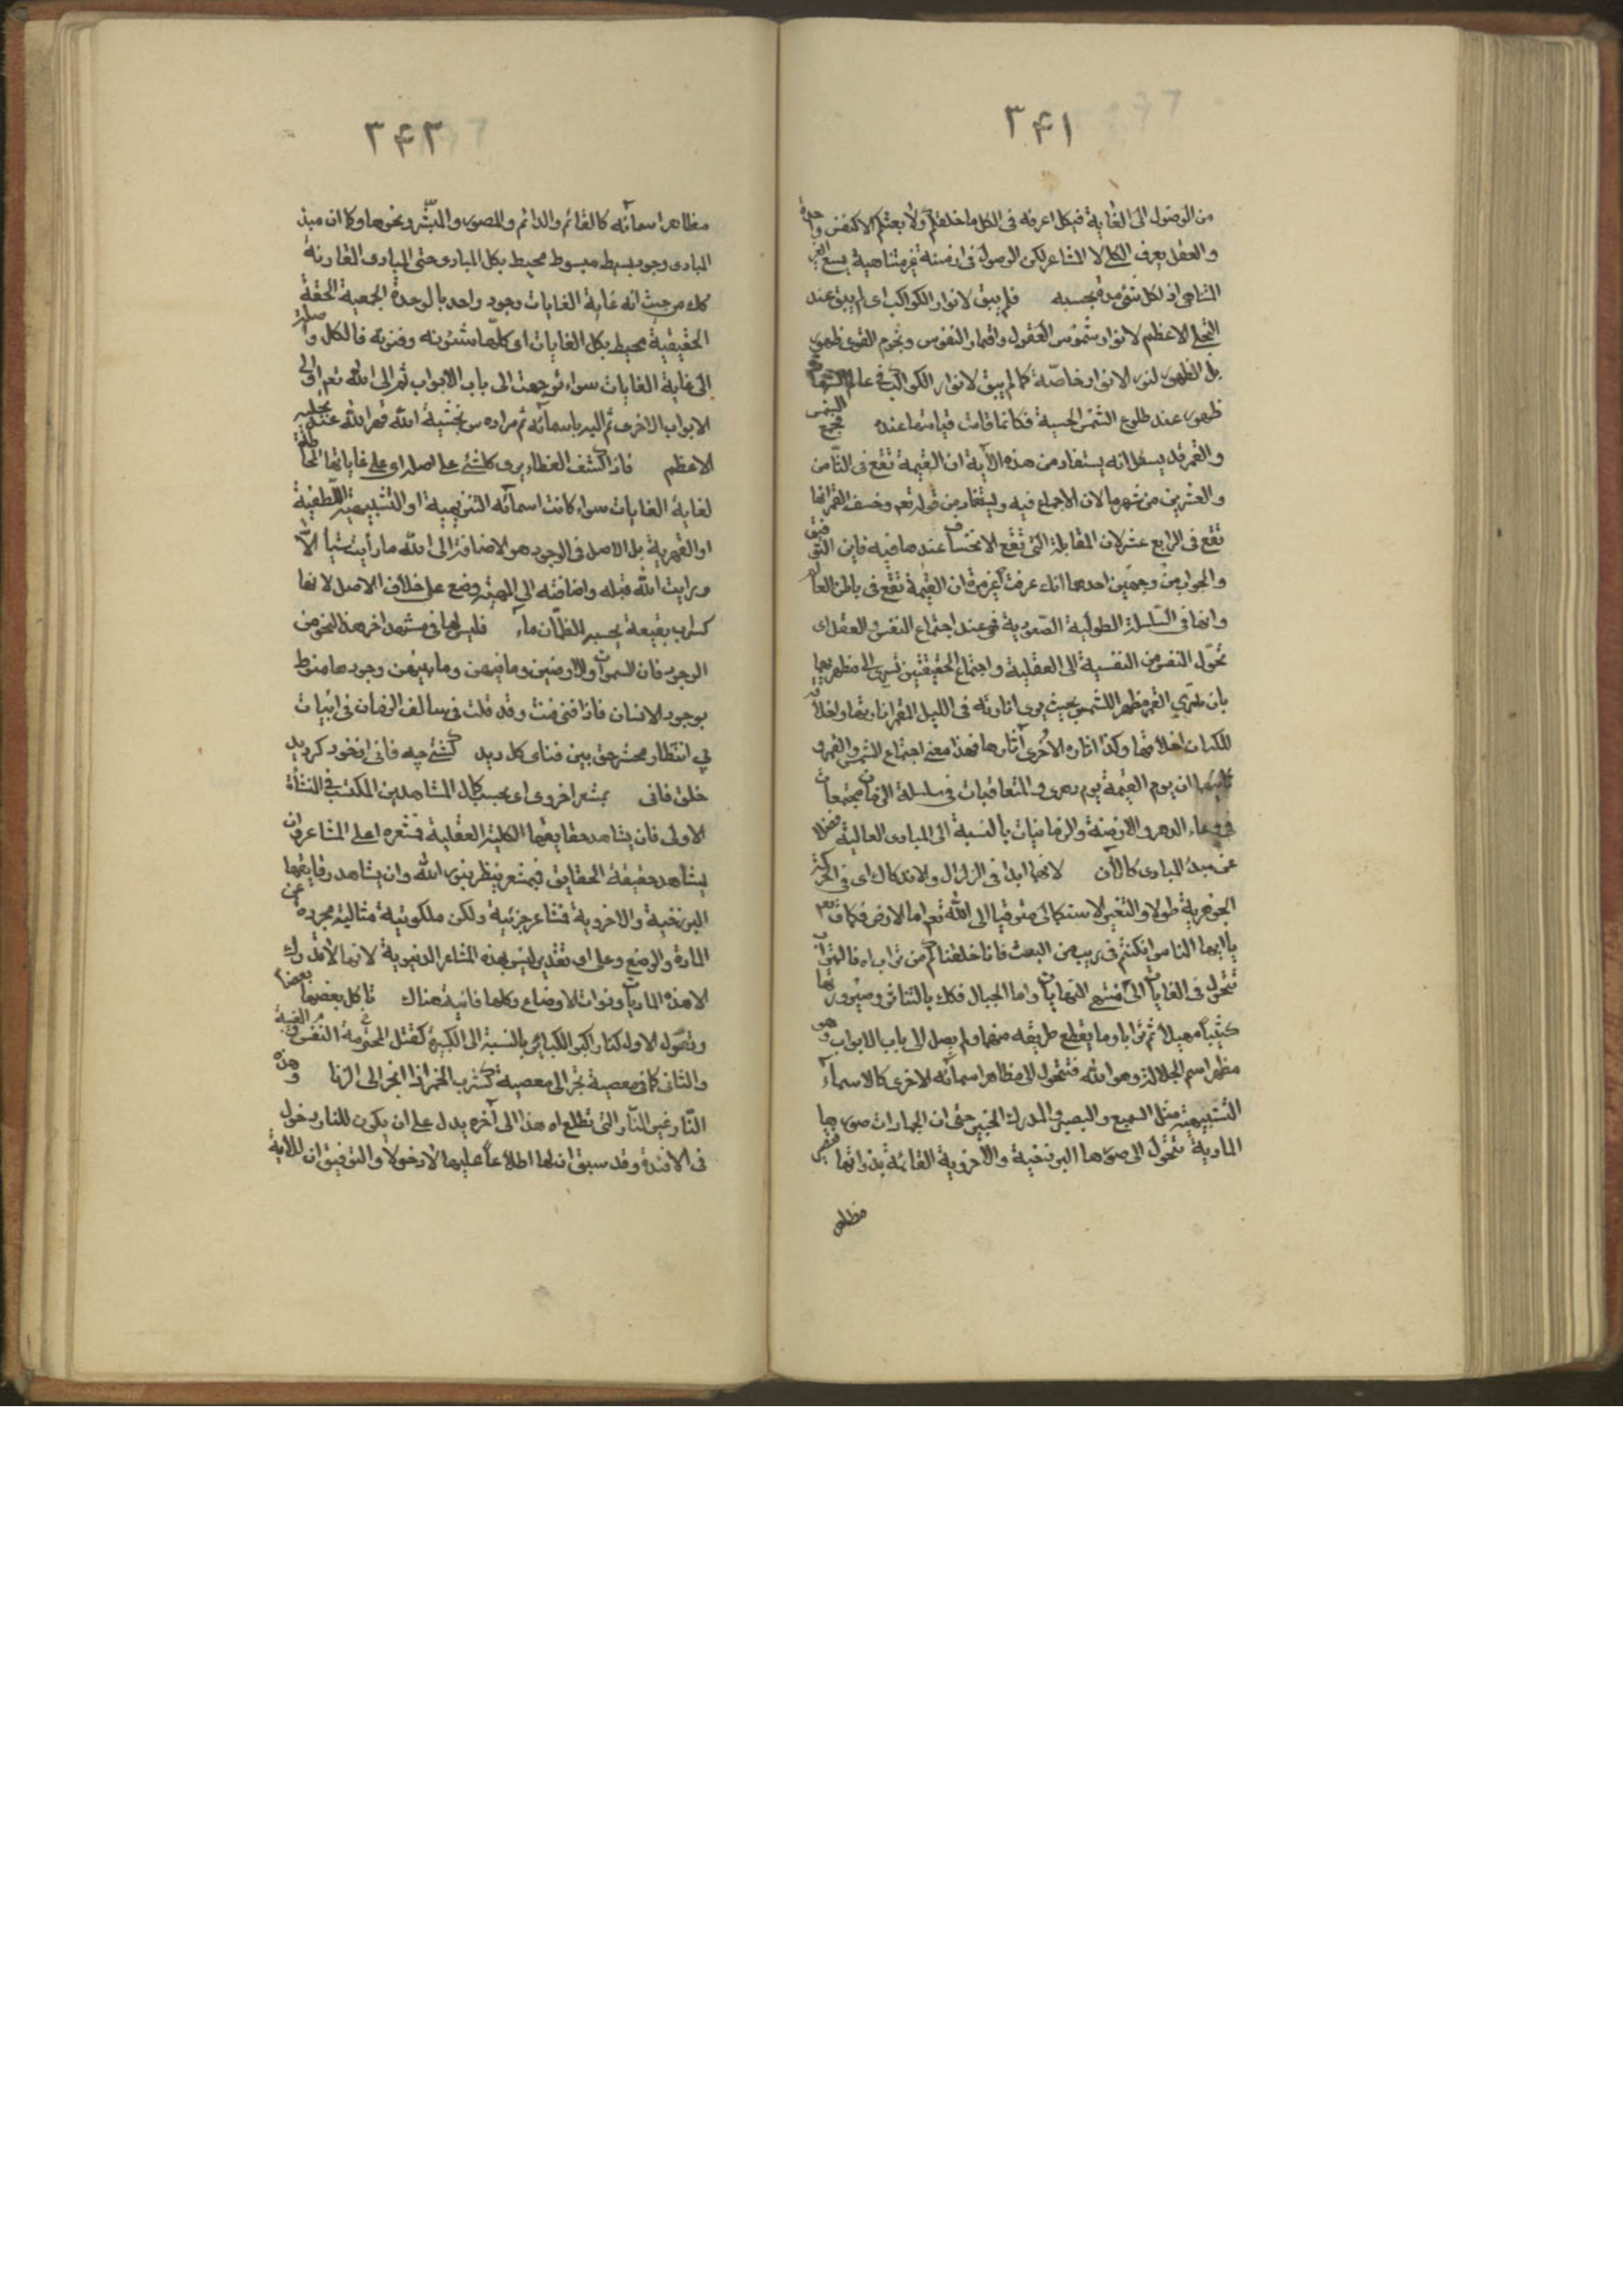 ۳۴۱
من الوصول الى الغاية فبكل اعرفه فى الكل ما خلقكم ولا بعثكم الا كنفس واحدة
والعقل يعرف الكل لا المشاعر لكن الوصول فى ازمنة غير متناهية يسع الغير
المتناهى اذ لكل شئ مدة بحسبه فلم يبق لانوار الكواكب اى لم يبق عند
التجلى الاعظم لانوار شموس العقول واقمار النفوس ونجوم القوى ظهور
بل الظهور لنور الانوار خاصّة كما لم يبق لانوار الكواكب فى عالم
ظهور عند طلوع الشمس الحسية فكانما قامت قيامتها عنده فجمع الشمس
والقمر قد يسئل انه يستفاد من هذه الآية ان القيمة تقع فى الثامن
والعشرين من شهرها لان الاجماع فيه ويستفاد من قوله تعم وخسف القمر انها
تقع فى الرابع عشر لان المقابلة التى تقع الانخساف عندها فيه فاين التوفيق
والجواب من وجهين احدهما انك عرفت غير مرة ان القيمة تقع فى باطن العالم
وانها فى السلسلة الطولية الصعودية فهى عند اجتماع النفس والعقل اى
تحوّل النفس من النفسية الى العقلية واجتماع الحقيقتين يسرى الى مظهريهما
بان القمر مظهر الشمس بحيث يرى انارته فى الليل القمر انارتها واخلاقه
للكدرات اخلاقها وكذا اثاره الاخرى آثارها فهذا معنى اجتماع الشمس والقمر و
ثانيهما ان يوم القيمة يوم دهرى والمتعاقبات فى سلسلة الزمان مجتمعات
فى وعاء الدهر والازمنة والزمانيات بالنسبة الى المبادى العالية فضلا
عن مبدء المبادى كالآن لانها ابدا فى الزلزال والاندكاك اى فى الحركة
الجوهرية طولا والتغير الاستكمالى مترقيا الى الله تعم اما الارض فكما قال تعم
يا ايها الناس ان كنتم فى ريب من البعث فانا خلقناكم من تراب اه فالتراب
تتحول فى الغايات الى منتهى النهايات واما الجبال فكك بالتناثر وصيرورتها
كثيبا مهيلا ثم ترابا وما يقطع طريقه منها ولم يصل الى باب الابواب وهو
مظهر اسم الجلالة وهو الله فتتحول الى مظاهر اسمائه الاخرى كالاسماء
التشبيهية مثل السميع والبصير والمدرك الخبير حتى ان الجمادات صورها
المادية تتحول الى صورها البرزخية والاخروية القائمة بذواتها فتصير
مظاهر
۳۴۲
مظاهر اسمائه كالقائم والدائم والمصور والمبشر ونحوها وكما ان مبدء
المبادى وجود بسيط مبسوط محيط بكل المبادى حتى المبادى المقارنة
كك من حيث انه غاية الغايات وجود واحد بالوحدة الجمعية الحقة
الحقيقية محيط بكل الغايات اى كلها شئونه وفنونه فالكل واصلة
الى غاية الغايات سواء توجهت الى باب الابواب ثم الى الله تعم او الى
الابواب الاخرى ثم اليه باسمائه ثم مراده من بخشية الله قهر الله عند تجليه
الاعظم فاذا كشف الغطاء يرى كل شئ على اصله اى على غاياتها
لغاية الغايات سواء كانت اسمائه التنزيهية او التشبيهية اللطفية
او القهرية بل الاصل فى الوجود هو الاضافة الى الله ما رأيت شيئا الا
ورايت الله قبله واضافته الى المهية وضع على خلاف الاصل لانها
كسراب بقيعة يحسبه الظمآن ماء فليس لها فى مشهد اخر هذا النحو من
الوجود فان السموات والارضين وما فيهن وما بينهن وجودها منوط
بوجود الانسان فاذا فنى فنت وقد قلت فى سالف الزمان فى ابيات
بى انتظار محشر حق بين فناى كل ديد كشتى چه فانى از خود گرديد
خلق فانى بمشعر اخروى اى بحسب كمال المشاهدين المكتسب فى النشأة
الاولى فان يشاهد حقايقها الكلية العقلية فمشعره اعلى المشاعر وان
يشاهد حقيقة الحقايق فبمشعر ينظر بنور الله وان يشاهد رقايقها
البرزخية والاخروية فمشاعر جزئية ولكن ملكوتية مثالية مجردة عن
المادة والوضع وعلى اى تقدير ليس بهذه المشاعر الدنيوية لانها لا تدرك
الا هذه الماديات وذوات الاوضاع وكلها فانية هناك تاكل بعضها بعضا
وتصول الاول كنار اكبر الكبائر بالنسبة الى الكبيرة كقتل المحترمة النفس والغيبة
والثانى كما فى معصية تجر الى معصية كشرب الخمر اذا انجر الى الزنا وهذه
النار غير النار التى تطلع اه هذا الى آخره يدل على ان يكون للنار دخول
فى الافئدة وقد سبق ان لها اطلاعا عليها لا دخولا والتوفيق ان للاية